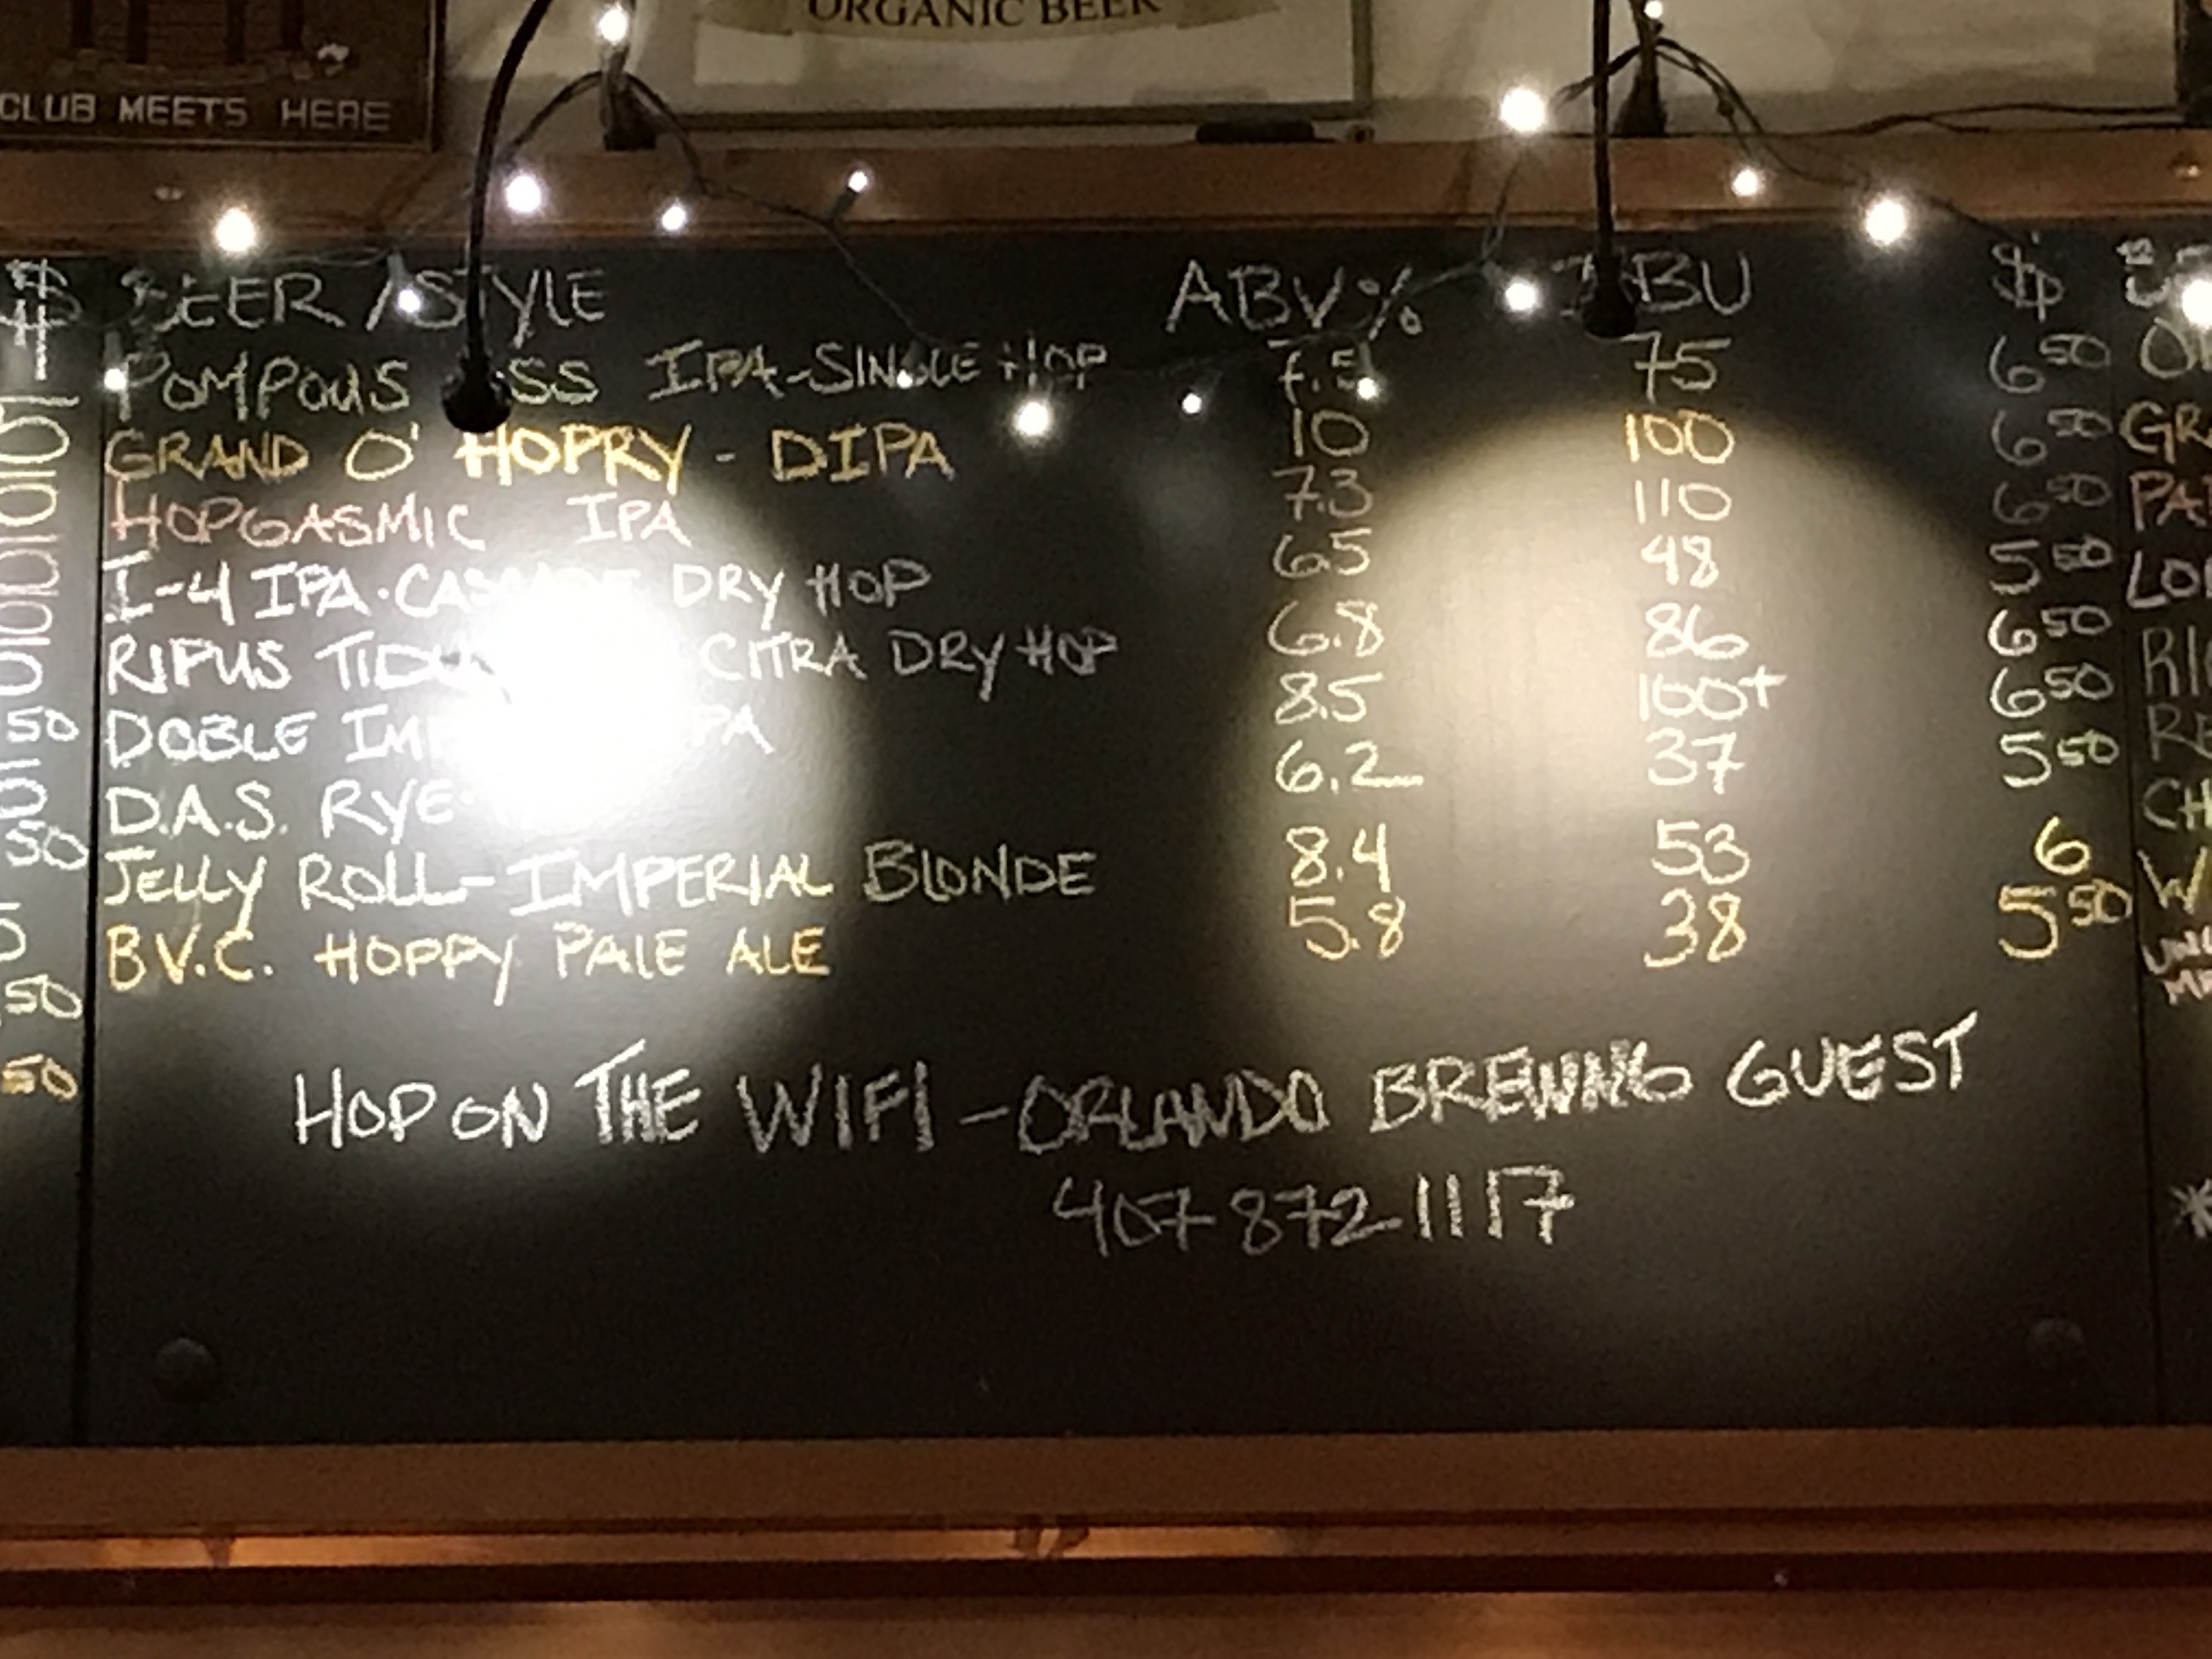 ORGANIC BEER
CLUB MEETS HERE
$ BEER / STYLE ABV% IBU $
POMPOUS IPA-SINGLE HOP 7.5 75 6 50
GRAND O' HOPRY - DIPA 10 100 6 50
HOPGASMIC IPA 7.3 110 6 50
I-4 IPA CASCADE DRY HOP 6.5 48 5 50
RIPUS CITRA DRY HOP 6.8 86 6 50
DOBLE 8.5 100+ 6 50
D.A.S. RYE 6.2 37 5 50
JELLY ROLL - IMPERIAL BLONDE 8.4 53 6
B.V.C. HOPPY PALE ALE 5.8 38 5 50
HOP ON THE WIFI - ORLANDO BREWING GUEST
407 872 1117